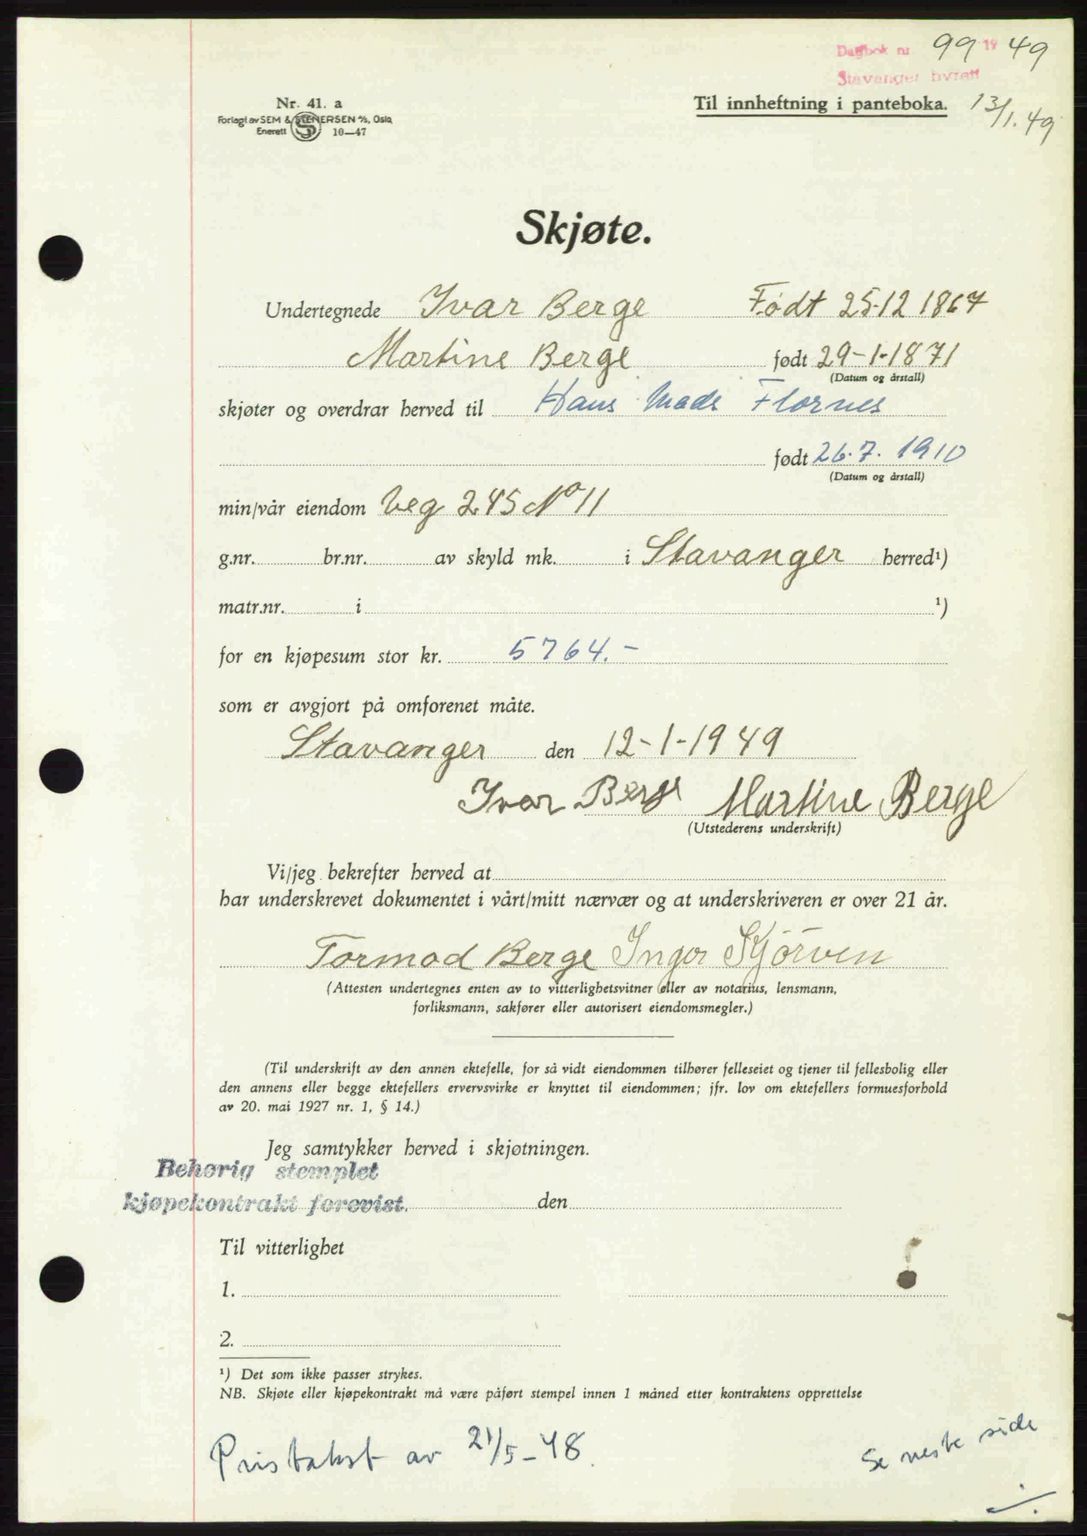 Dagbok nr. 99 19 49
Stavanger byrett
Nr. 41. a
Til innheftning i panteboka.
13/1. 49
Forlagt av SEM & STENERSEN A/S, Oslo
Enerett 10—47
Skjøte.
Undertegnede Ivar Berge Født 25-12 1867
Martine Berge født 29-1-1871
(Datum og årstall)
skjøter og overdrar herved til Hans Mads Flornes
født 26.7. 1910
(Datum og årstall)
min/vår eiendom Veg 245 No 11
g.nr. br.nr. av skyld mk. i Stavanger herred¹)
matr.nr. i ¹)
for en kjøpesum stor kr. 5764.-
som er avgjort på omforenet måte.
Stavanger den 12-1-1949
Ivar Berge Martine Berge
(Utstederens underskrift)
Vi/jeg bekrefter herved at
har underskrevet dokumentet i vårt/mitt nærvær og at underskriveren er over 21 år.
Tormod Berge Inger Kjörven
(Attesten undertegnes enten av to vitterlighetsvitner eller av notarius, lensmann,
forliksmann, sakfører eller autorisert eiendomsmegler.)
(Til underskrift av den annen ektefelle, for så vidt eiendommen tilhører felleseiet og tjener til fellesbolig eller
den annens eller begge ektefellers ervervsvirke er knyttet til eiendommen; jfr. lov om ektefellers formuesforhold
av 20. mai 1927 nr. 1, § 14.)
Jeg samtykker herved i skjøtningen.
Behørig stemplet
kjøpekontrakt forevist.
den
Til vitterlighet
1.
2.
¹) Det som ikke passer strykes.
NB. Skjøte eller kjøpekontrakt må være påført stempel innen 1 måned etter kontraktens opprettelse
Pristakst av 21/5-48.
Se neste side